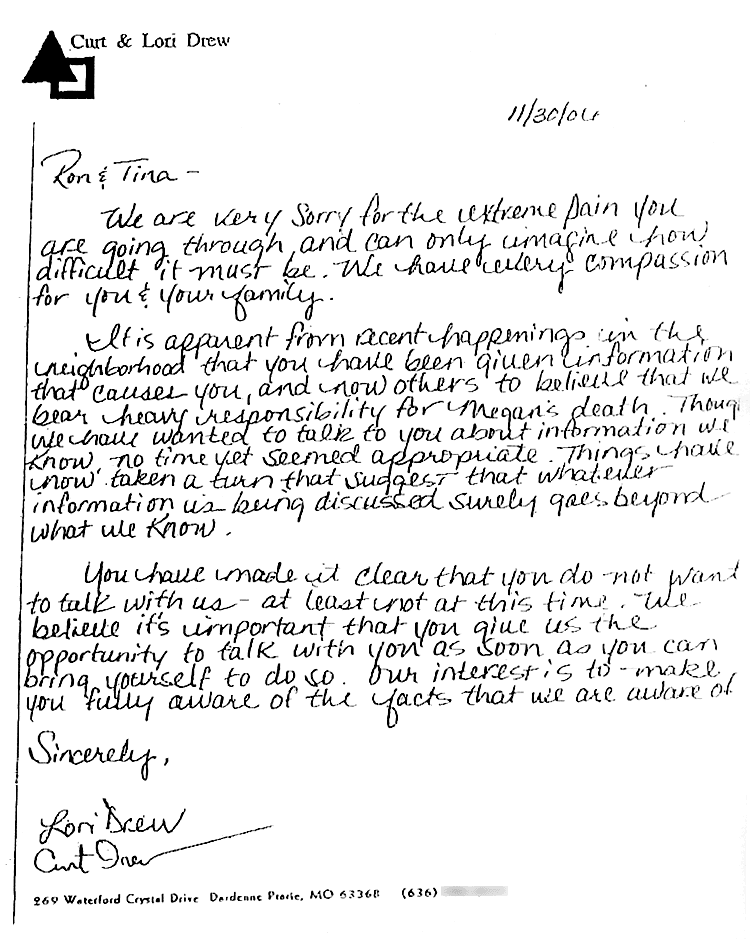 Curt & Lori Drew
11/30/06
Ron & Tina -
We are very sorry for the extreme pain you
are going through, and can only imagine how
difficult it must be. We have every compassion
for you & your family.
It is apparent from recent happenings in the
neighborhood that you have been given information
that causes you, and now others to believe that we
bear heavy responsibility for Megan's death. Thoug
we have wanted to talk to you about information we
know no time yet seemed appropriate. Things have
now taken a turn that suggest that whatever
information is being discussed surely goes beyond
what we know.
You have made it clear that you do not want
to talk with us - at least not at this time. We
believe it's important that you give us the
opportunity to talk with you as soon as you can
bring yourself to do so. Our interest is to make
you fully aware of the facts that we are aware of
Sincerely,
Lori Drew
Curt Drew
269 Waterford Crystal Drive Dardenne Prarie, MO 63368 (636)